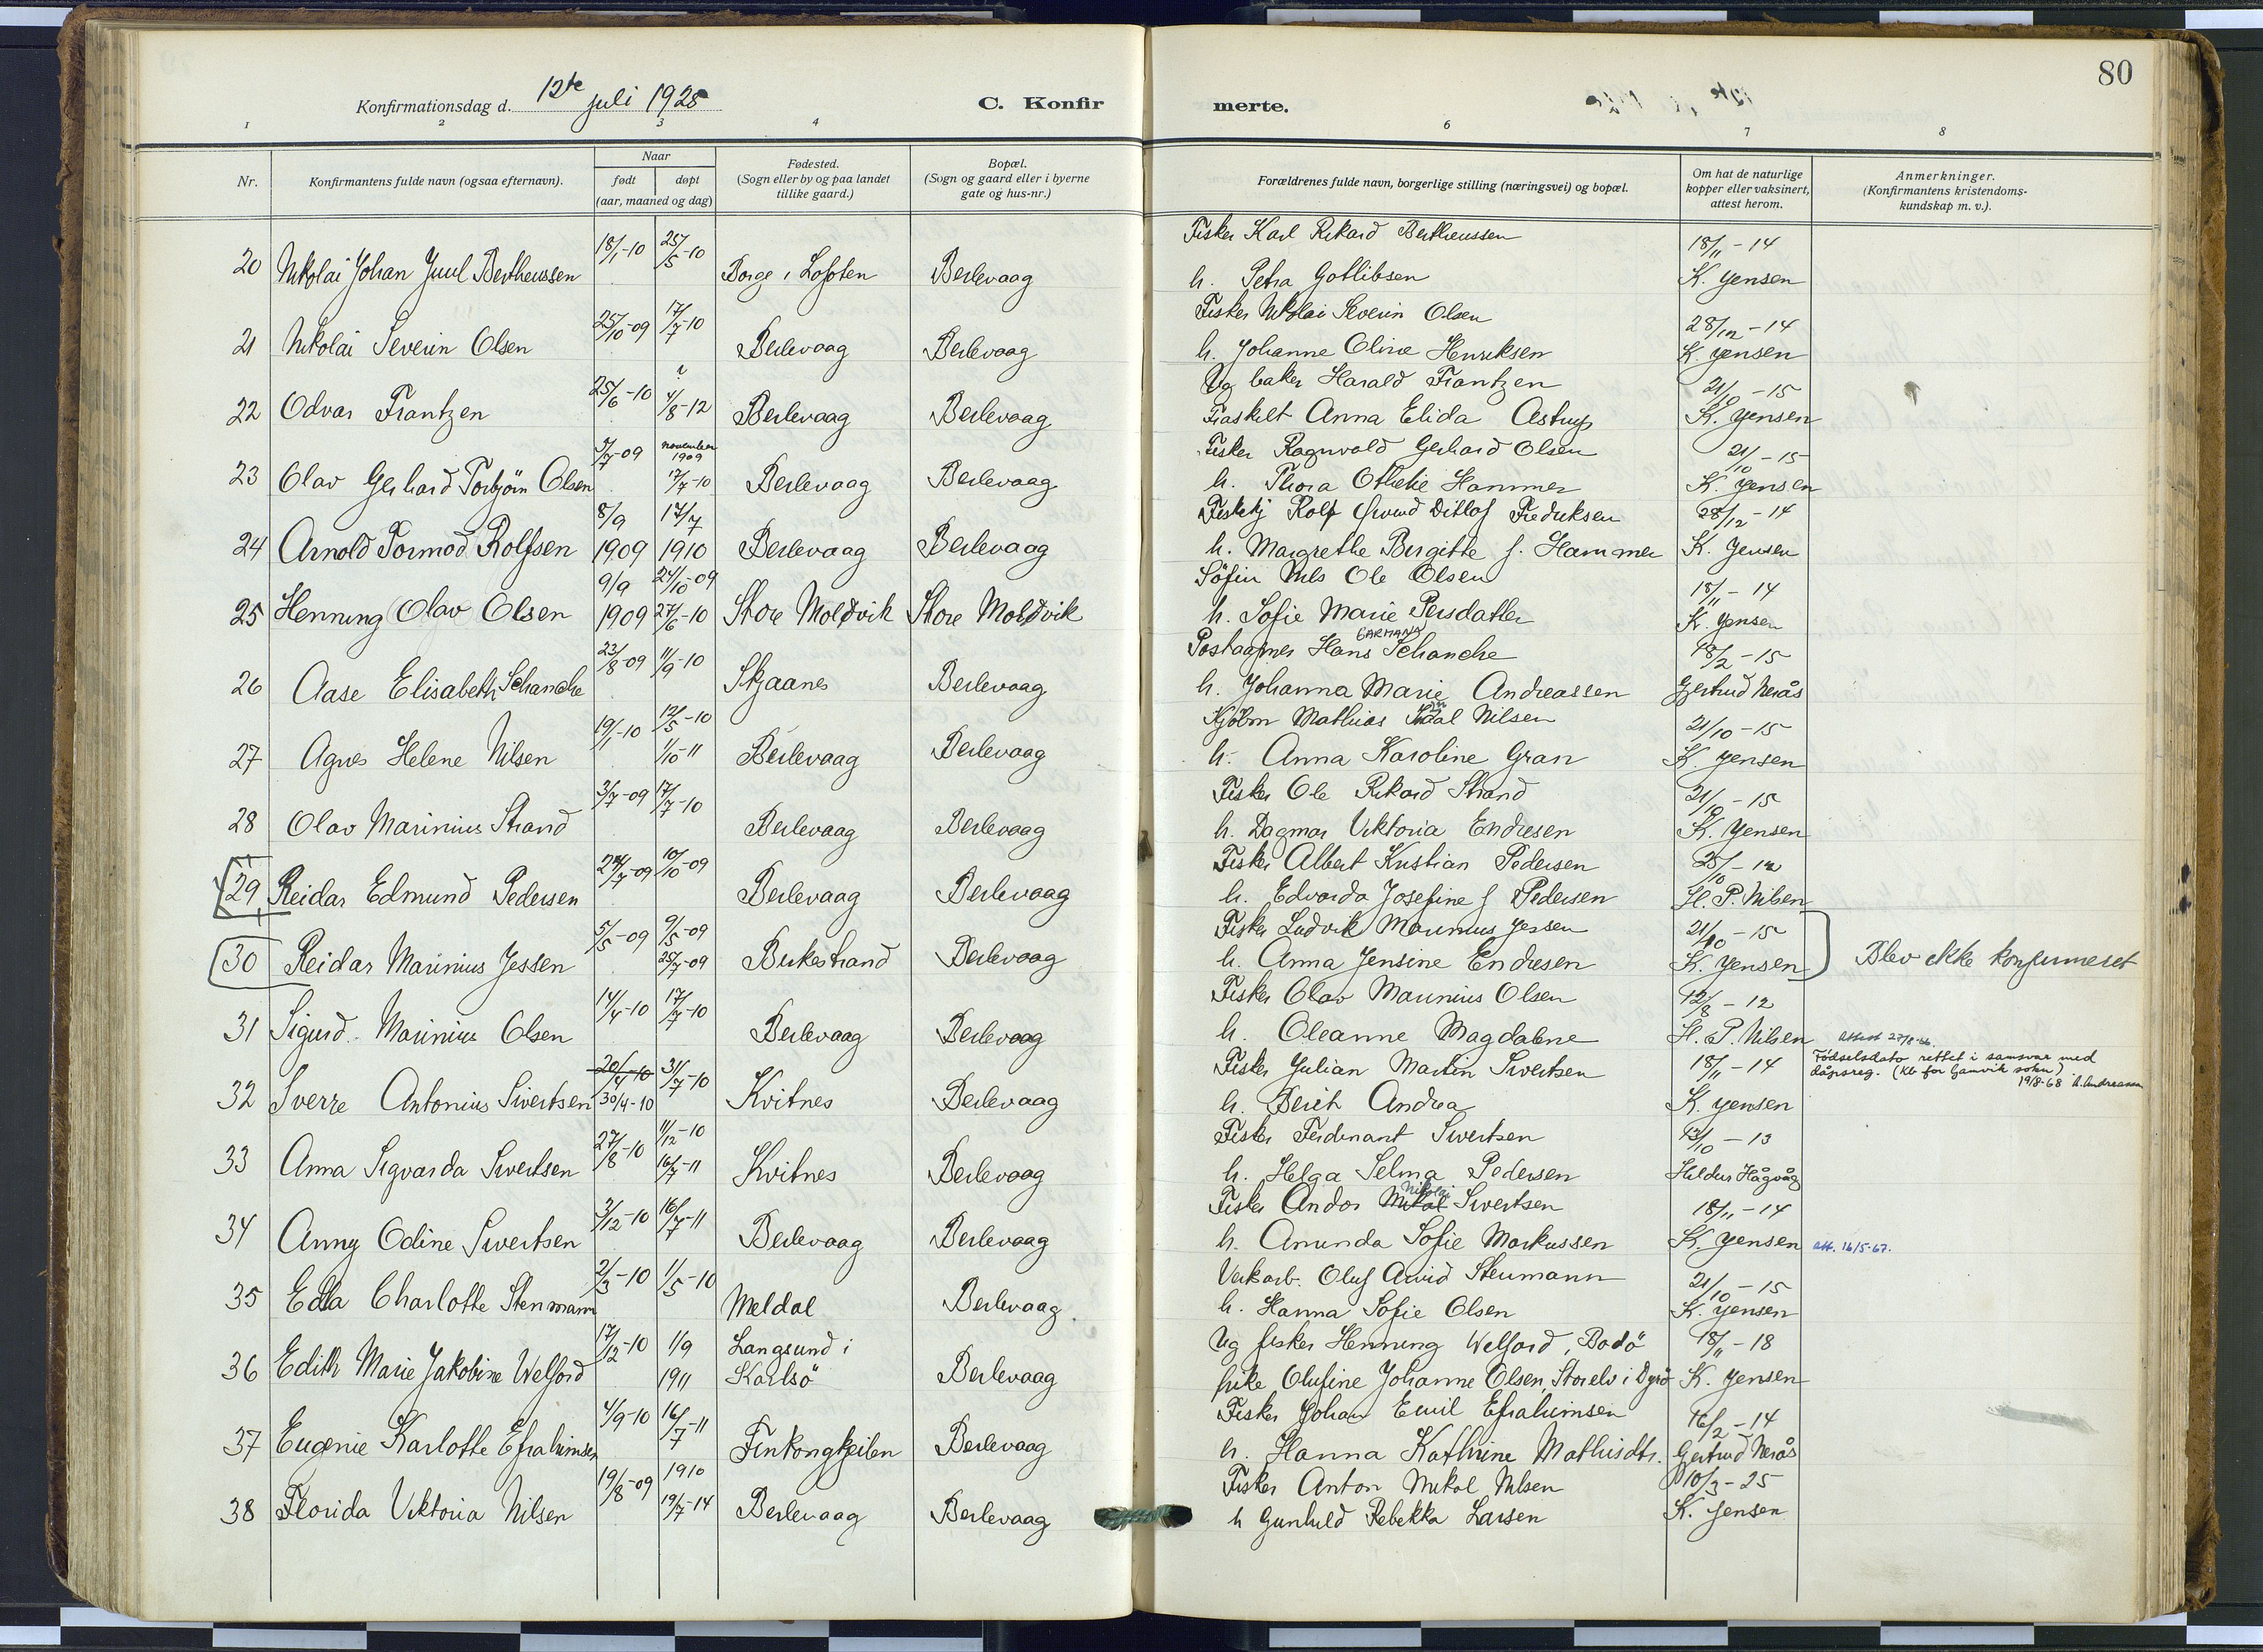 80
Konfirmationsdag d. 12te juli 1925
C. Konfirmerte.
1 2 3 4 6 7 8
Nr.
Konfirmantens fulde navn (ogsaa efternavn).
Naar
født døpt
(aar, maaned og dag)
Fødested.
(Sogn eller by og paa landet
tillike gaard.)
Bopæl.
(Sogn og gaard eller i byerne
gate og hus-nr.)
Forældrenes fulde navn, borgerlige stilling (næringsvei) og bopæl.
Om hat de naturlige
kopper eller vaksinert,
attest herom.
Anmerkninger.
(Konfirmantens kristendoms-
kundskap m. v.).
18/1-10 25/5-10 Fisker Karl Rikard Bertheussen 18/11-14
20 Nikolai Johan Juul Bertheussen Borge i Lofoten Berlevaag h. Petra Gotlibsen K. Jensen
25/10-09 17/7-10 Fisker Nikolai Severin Olsen 28/12-14
21 Nikolai Severin Olsen Berlevaag Berlevaag h. Johanne Oline Henriksen K. Jensen
25/6-10 ? 4/8-12 Ug baker Harald Frantzen 21/10-15
22 Odvar Frantzen Berlevaag Berlevaag Fraskilt Anna Elida Astrup K. Jensen
5/7-09 november 1909 Fisker Ragnvald Gerhard Olsen 21/10-15
23 Olav Gerhard Torbjörn Olsen 17/7-10 Berlevaag Berlevaag h. Thora Othelie Hammer K. Jensen
8/9 17/7 Rolf Ditlof Fredriksen 28/12-14
24 Arnold Tormod Rolfsen 1909 1910 Berlevaag Berlevaag h. Margrethe Birgitte f. Hammer K. Jensen
9/9 24/10-09 Söfin Nils Ole Olsen 18/11-14
25 Henning Olav Olsen 1909 27/6-10 Store Moldvik Store Moldvik h. Sofie Marie Persdatter K. Jensen
GARMANN
23/8-09 11/9-10 Postaapner Hans Schanche 18/2-15
26 Aase Elisabeth Schanche Skjaanes Berlevaag h. Johanna Marie Andreassen Gjertrud Nerås
19/1-10 12/5-10 Kjöbm Mathias Nilsen 21/10-15
27 Agnes Helene Nilsen 1/10-11 Berlevaag Berlevaag h. Anna Karoline Gran K. Jensen
3/7-09 17/7-10 Fisker Ole Rikard Strand 21/10-15
28 Olav Marinius Strand Berlevaag Berlevaag h. Dagmar Viktoria Endresen K. Jensen
24/7-09 10/10-09 Fisker Albert Kristian Pedersen 25/10-12
29 Reidar Edmund Pedersen Berlevaag Berlevaag h. Edvarda Josefine f Pedersen H. P. Nilsen
5/5-09 9/5-09 Fisker Ludvik Marinius Jessen 21/10-15
30 Reidar Marinius Jessen 25/7-09 Birkestrand Berlevaag h. Anna Jensine Endresen K. Jensen Blev ikke konfirmeret
14/4-10 17/7-10 Fisker Olav Marinius Olsen 12/8-12
31 Sigurd Marinius Olsen Berlevaag Berlevaag h. Oleanne Magdalene H. P. Nilsen
Attest 27/8-66.
20/4-10 31/7-10 Fisker Julian Martin Sivertsen 18/11-14 Födselsdato rettet i samsvar med
dåpsreg. (Kb for Gamvik sokn)
19/8-68 A. Andreassen
32 Sverre Antonius Sivertsen 30/4-10 Kvitnes Berlevaag h. Berit Andrea K. Jensen
27/8-10 11/12-10 Fisker Ferdinant Sivertsen 13/10-13
33 Anna Sigvarda Sivertsen 16/7-11 Kvitnes Berlevaag h. Helga Selma Pedersen Heldur Hågvåg
Nikolai
3/12-10 16/7-11 Fisker Andor Mikal Sivertsen 18/11-14
34 Anny Odine Sivertsen Berlevaag Berlevaag h. Amunda Sofie Markussen K. Jensen att. 16/5-67.
2/3-10 1/5-10 Verkarb. Oluf Arvid Stenmann 21/10-15
35 Edla Charlotte Stenmann Meldal Berlevaag. h. Hanna Sofie Olsen K. Jensen
17/12-10 1/9 Langsund i Ug fisker Henning Welford, Bodö 18/11-18
36 Edith Marie Jakobine Welford 1911 Karlsö Berlevaag pike Olufine Johanne Olsen, Storelv i Dyrö K. Jensen
4/9-10 16/7-11 Fisker Johan Emil Efraimsen 16/2-14
37 Eugenie Karlotte Efraimsen Finkongkeilen Berlevaag h. Hanna Kathrine Mathisdtr. Gjertrud Nerås
19/8-09 1910 Fisker Anton Mikal Nilsen 10/3-25
38 Florida Viktoria Nilsen 19/7-14 Berlevaag Berlevaag h Gunhild Rebekka Larsen K. Jensen